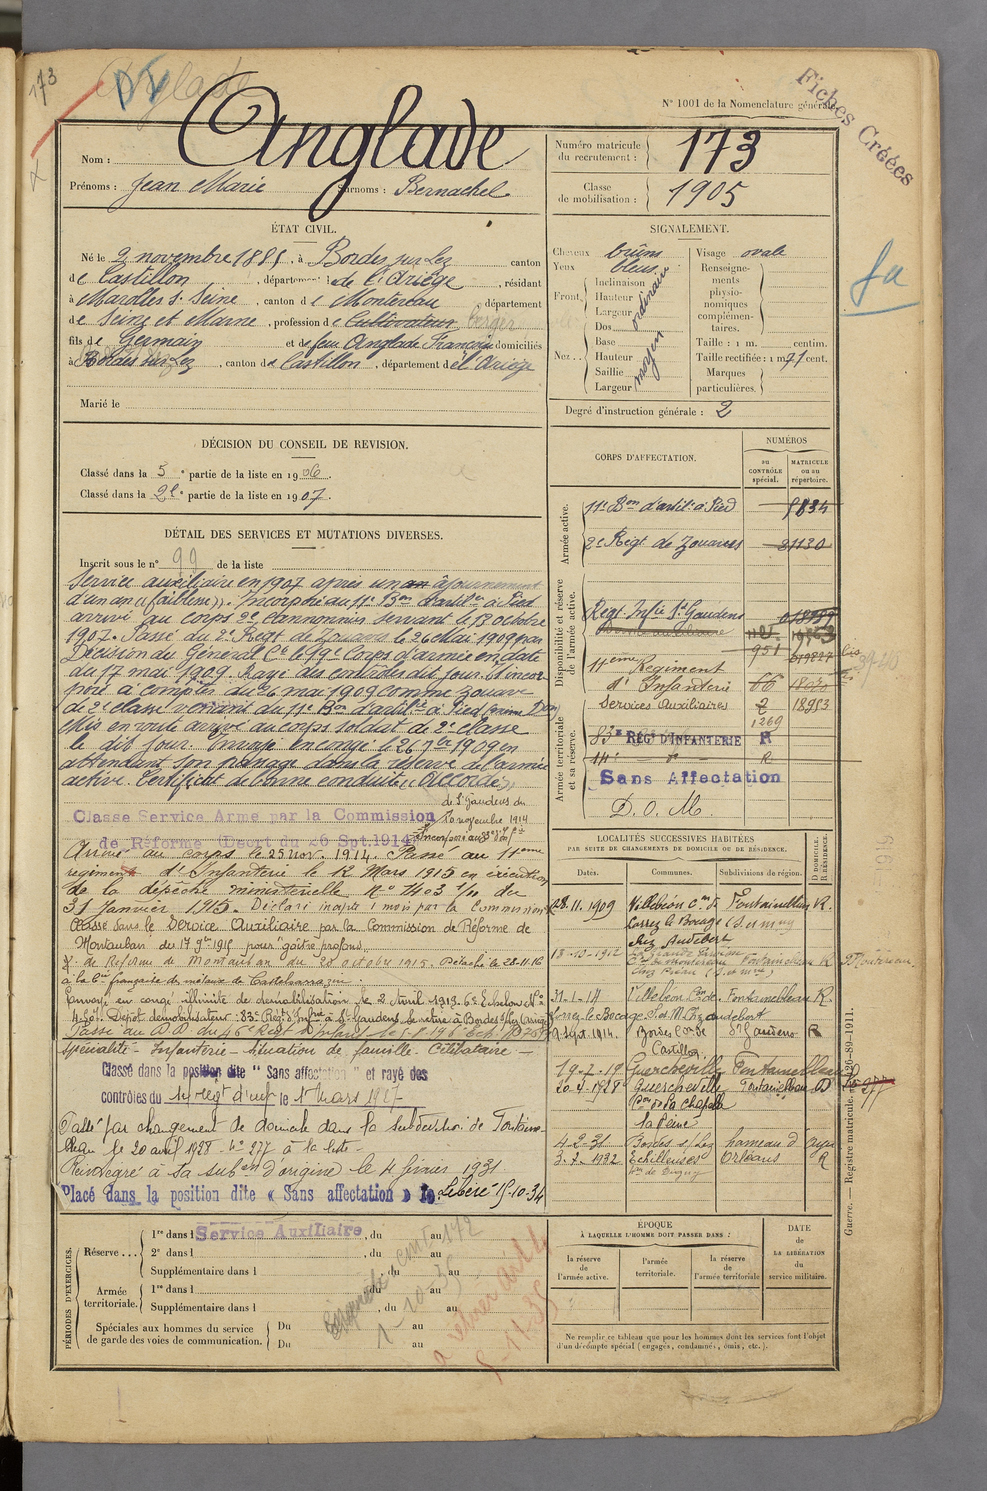 173
Anglade
N° 1001 de la Nomenclature générale
Fiches Créées
Nom : Anglade
Prénoms : Jean Marie Surnoms : Bernachel
Numéro matricule du recrutement : 173
Classe de mobilisation : 1905
ÉTAT CIVIL.
Né le 2 novembre 1885, à Bordes sur Lez canton
de Castillon, département de l'Ariège, résidant
à Marolles s. Seine, canton de Montereau, département
de Seine et Marne, profession de Cultivateur berger
fils de Germain et de feu Anglade Françoise domiciliés
à Bordes sur Lez, canton de Castillon, département de l'Ariège
Marié le
SIGNALEMENT.
Cheveux bruns
Yeux bleus
Front
Inclinaison
Hauteur
Largeur
ordinaire
Nez
Dos
Base
Hauteur
Saillie
Largeur
moyen
Visage ovale
Renseignements physionomiques complémentaires.
Taille : 1 m. centim.
Taille rectifiée : 1 m 71 cent.
Marques particulières.
Degré d'instruction générale : 2
8a
DÉCISION DU CONSEIL DE REVISION.
Classé dans la 5e partie de la liste en 1906.
Classé dans la 2e partie de la liste en 1907.
DÉTAIL DES SERVICES ET MUTATIONS DIVERSES.
Inscrit sous le n° 99 de la liste
Service auxiliaire en 1907 après un an ajournement
d'un an (faiblesse). Incorporé au 11e Bon d'artie à Pied
arrivé au corps 2e canonnier servant le 12 octobre
1907. Passé au 2e Régt de Zouaves le 26 Mai 1909 par
Décision du Général Ct le 19e Corps d'armée en date
du 17 mai 1909. Rayé des contrôles dit jour. Et incor-
poré à compter du 26 mai 1909 comme zouave
de 2e classe venant du 11e Bon d'artie à Pied
Mis en route arrivé au corps soldat de 2e classe
le dit jour. Envoyé en congé le 26 7bre 1909 en
attendant son passage dans la réserve de l'armée
active. Certificat de bonne conduite "Accordé"
Classé Service Armé par la Commission de St Gaudens du
de Réforme (Décret du 26 Sept. 1914) novembre 1914
Arrivé au corps le 25 nov. 1914. Passé au 11eme
regiment d'Infanterie le 12 Mars 1915 en exécution
de la dépêche ministerielle No 1403 1/10 du
31 Janvier 1915. Déclaré inapte 1 mois par la Commission
Classé dans le Service Auxiliaire par la Commission de Réforme de
Montauban du 17 9bre 1915 pour "goître profond"
de Réforme de Montauban du 28 octobre 1915. Détaché le 28-11-16
à la Cie française des métaux de Castelsarrasin.
Envoyé en congé illimité de démobilisation le 2 Avril 1919. 6e Echelon No
Dépôt démobilisateur : 83e Régt Infrie à St Gaudens se retire à Bordes s/Lez (Ariège)
Spécialité - Infanterie - Situation de famille - Célibataire -
Classé dans la position dite "Sans affectation" et rayé des
contrôles du régt d'inf le 1 Mars 1927
Passé par changement de domicile dans la subdivision de Fontaine-
bleau le 20 avril 1928 - No 277 à la liste -
Réintégré à sa subdon d'origine le 4 février 1931
Placé dans la position dite « Sans affectation » Libéré 15-10-34
CORPS D'AFFECTATION.
NUMÉROS
au CONTRÔLE spécial.
MATRICULE ou au répertoire.
Armée active.
11e Bon d'artie à Pied 8834
2e Régt de Zouaves 21130
Disponibilité et réserve de l'armée active.
Régt Infie St Gaudens
951
11eme Regiment
d'Infanterie 66
Services Auxiliaires 2 18953
1269
Armée territoriale et sa réserve.
83e RÉGt D'INFANTERIE R
Sans Affectation
D. O. M.
LOCALITÉS SUCCESSIVES HABITÉES
PAR SUITE DE CHANGEMENTS DE DOMICILE OU DE RÉSIDENCE.
Dates. Communes. Subdivisions de région. D DOMICILE. R RÉSIDENCE.
28.11.1909 Villebéon Con de Fontainebleau R.
Lorrez le Bocage (S. et Mne)
chez Audebert
13-10-1912 La Grande Paroisse
Con de Montereau Fontainebleau R
31-1-14 Villebéon Con de Fontainebleau R.
Lorrez-le-Bocage S. et M. Chez Audebert
9 Sept. 1914. Bordes Con de St Gaudens R
Castillon
19-2-19 Guercheville Fontainebleau
20-4-1928 Guercheville Fontainebleau D 277
Con de La Chapelle
la Reine
4-2-31 Bordes s/Lez hameau d'ayer
3-2-1932 Echilleuses Orléans R
1919
PÉRIODES D'EXERCICES.
Réserve...
1re dans l Service Auxiliaire, du au
2e dans l , du au
Supplémentaire dans l , du au
Armée territoriale.
1re dans l , du au
Supplémentaire dans l , du au
Spéciales aux hommes du service de garde des voies de communication.
Du au
Du au
ÉPOQUE
À LAQUELLE L'HOMME DOIT PASSER DANS :
la réserve de l'armée active.
l'armée territoriale.
la réserve de l'armée territoriale
DATE de LA LIBÉRATION du service militaire.
Ne remplir ce tableau que pour les hommes dont les services font l'objet
d'un décompte spécial (engagés, condamnés, omis, etc.).
Guerre. — Registre matricule. — 126-89-1911.